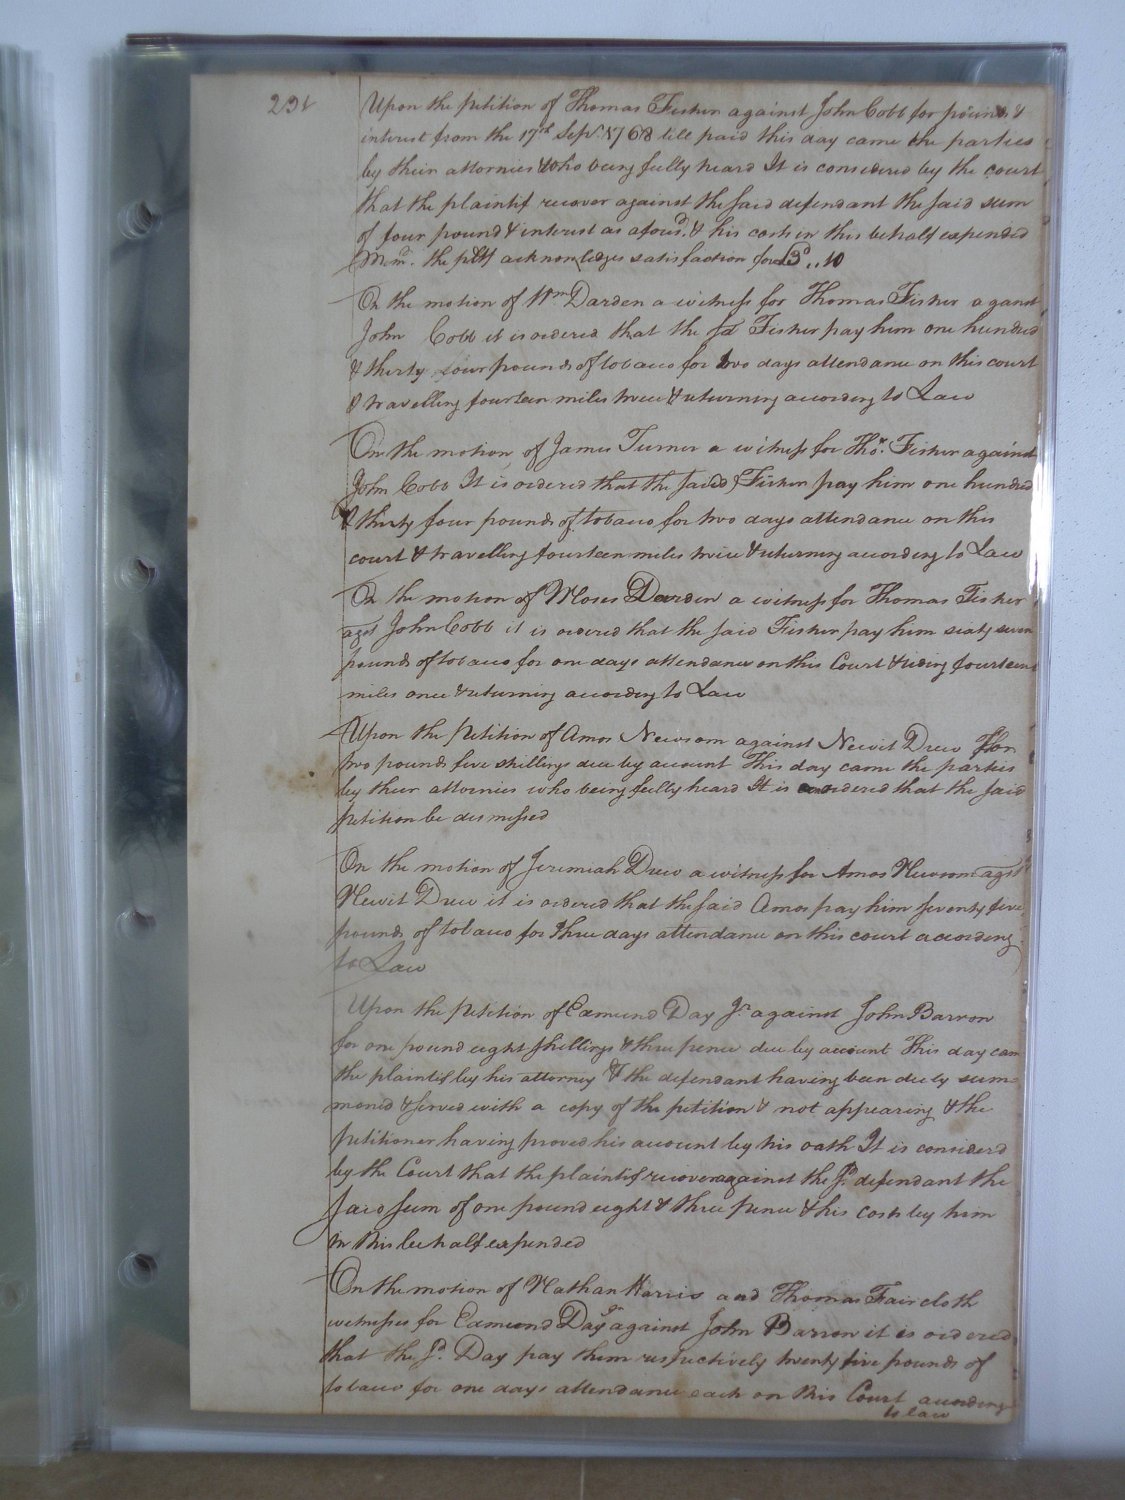 Upon the petition of Thomas Fisher against John Cobb for pounds &
interest from the 17th Sepr. 1768 till paid this day came the parties
by their attornies & who being fully heard It is considered by the court
that the plaintif recover against the said defendant the said sum
of four pound & interest as afousd. & his costs in this behalf expended
Mmd. the pltf acknowledges satisfaction for
On the motion of Wm Darden a witness for Thomas Fisher aganst
John Cobb it is ordered that the sd Fisher pay him one hundred
& thirty four pounds of tobacco for two days attendance on this court
& travelling fourteen miles twice & returning according to Law
On the motion of James Turner a witness for Thos. Fisher against
John Cobb It is ordered that the said Fisher pay him one hundred
& thirty four pounds of tobacco for two days attendance on this
court & travelling fourteen miles twice & returning according to Law
On the motion of Moses Darden a witness for Thomas Fisher
agst John Cobb it is ordered that the said Fisher pay him sixty seven
pounds of tobacco for one days attendance on this Court & riding fourteen
miles once & returning according to Law
Upon the Petition of Amos Newsom against Newit Drew For
two pounds five shillings due by account This day came the parties
by their attornies who being fully heard It is ordered that the said
petition be dismissed
On the motion of Jeremiah Drew a witness for Amos Newsom agst
Newit Drew it is ordered that the said Amos pay him seventy five
pounds of tobacco for three days attendance on this court according
to Law
Upon the petition of Edmund Day Jr against John Barron
for one pound eight shillings & three pence due by account This day came
the plaintif by his attorney & the defendant having been duely sum=
moned & served with a copy of the petition & not appearing & the
petitioner having proved his account by his oath It is considerd
by the Court that the plaintif recover against the sd. defendant the
said sum of one pound eight & three pence & his costs by him
in this behalf expended
On the motion of Nathan Harris and Thomas Faircloth
witnesses for Edmund Day Jr against John Barron it is ordered
that the sd. Day pay them respectively twenty five pounds of
tobacco for one days attendance each on this Court according
to law